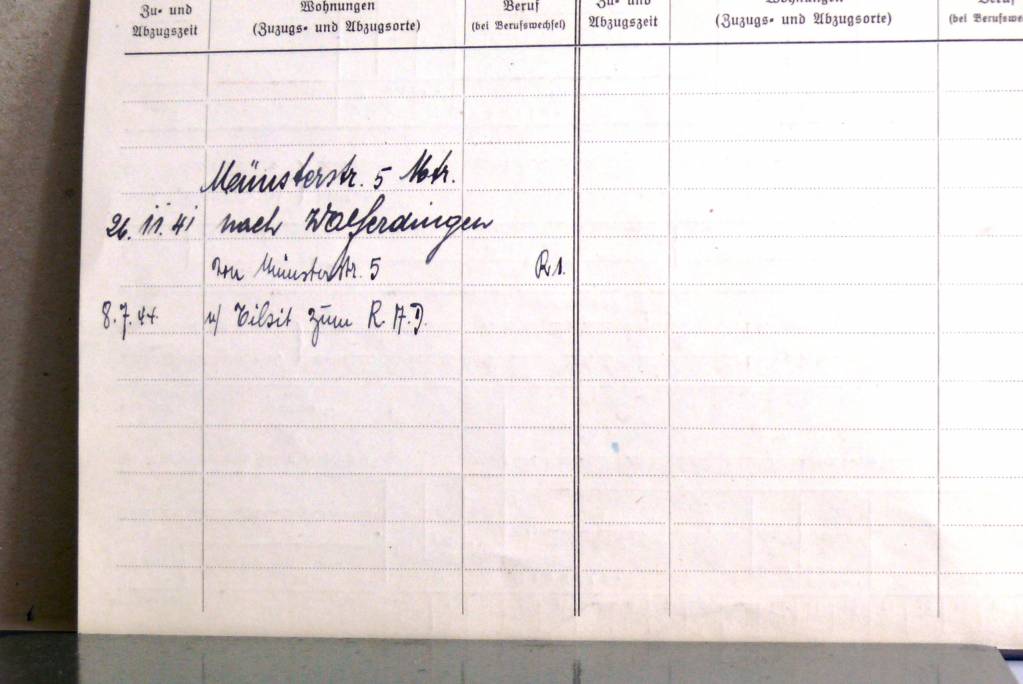 Zu- und Wohnungen Beruf Zu- und Wohnungen Beruf
Abzugszeit (Zuzugs- und Abzugsorte) (bei Berufswechsel) Abzugszeit (Zuzugs- und Abzugsorte) (bei Berufswe
Münsterstr. 5 Mtr.
26. 11. 41 nach Walferdingen
von Münsterstr. 5 R 1.
8.7.44 n/ Tilsit zum R.A.D.